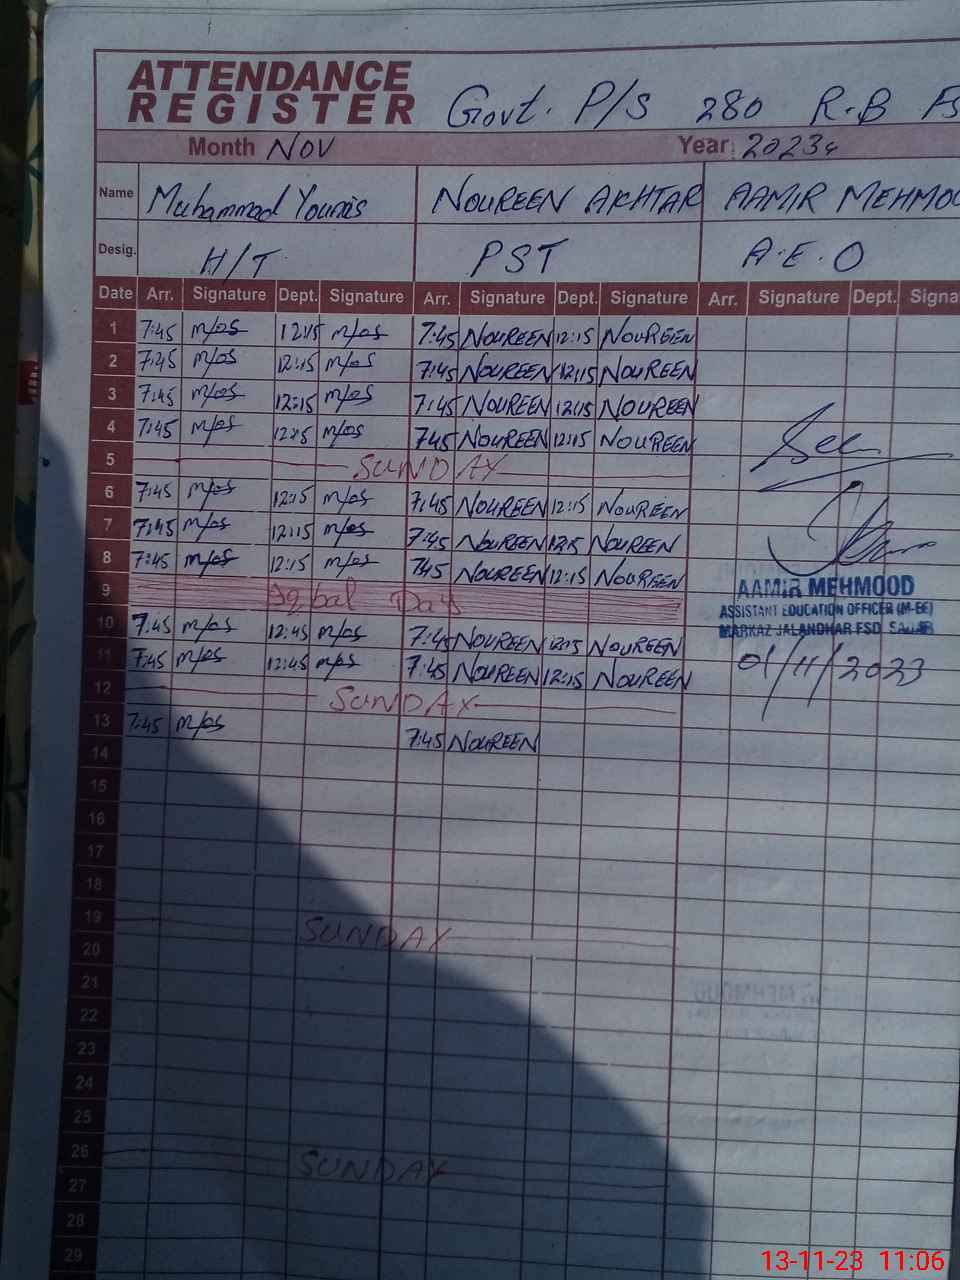 ATTENDANCE
REGISTER Govt. P/S 280 R.B
Month Nov Year 2023
Name Muhammad Younis NOUREEN AKHTAR AAMIR MEHMOO
Desig. H/T PST A.E.O
Date Arr. Signature Dept. Signature Arr. Signature Dept. Signature Arr. Signature Dept. Signa
1 7:45 12:15 7:45 NOUREEN 12:15 NOUREEN
2 7:45 12:15 7:45 NOUREEN 12:15 NOUREEN
3 7:45 12:15 7:45 NOUREEN 12:15 NOUREEN
4 7:45 12:15 745 NOUREEN 12:15 NOUREEN
5 SUNDAY
6 7:45 12:15 7:45 NOUREEN 12:15 NOUREEN
7 7:45 12:15 7:45 NOUREEN 12:15 NOUREEN
8 7:45 12:15 745 NOUREEN 12:15 NOUREEN
9 Iqbal Day
AAMIR MEHMOOD
ASSISTANT EDUCATION OFFICER (M-EE)
MARKAZ JALANDHAR FSD
10 7:45 12:45 7:45 NOUREEN 12:15 NOUREEN
11 7:45 12:45 7:45 NOUREEN 12:15 NOUREEN
01/11/2023
12 SUNDAY
13 7:45 7:45 NOUREEN
14
15
16
17
18
19 SUNDAY
20
21
22
23
24
25
26 SUNDAY
27
28
29
13-11-23 11:06